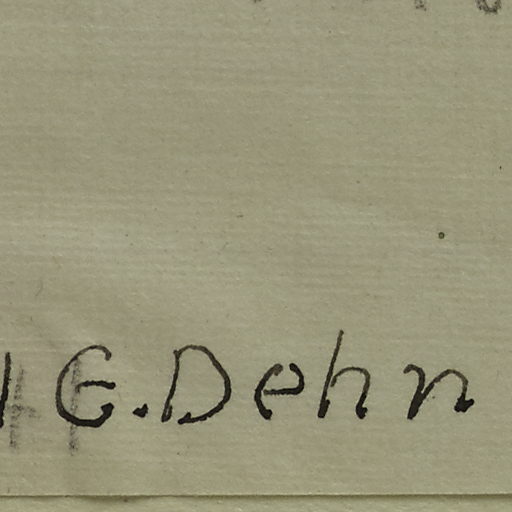 G. Dehn